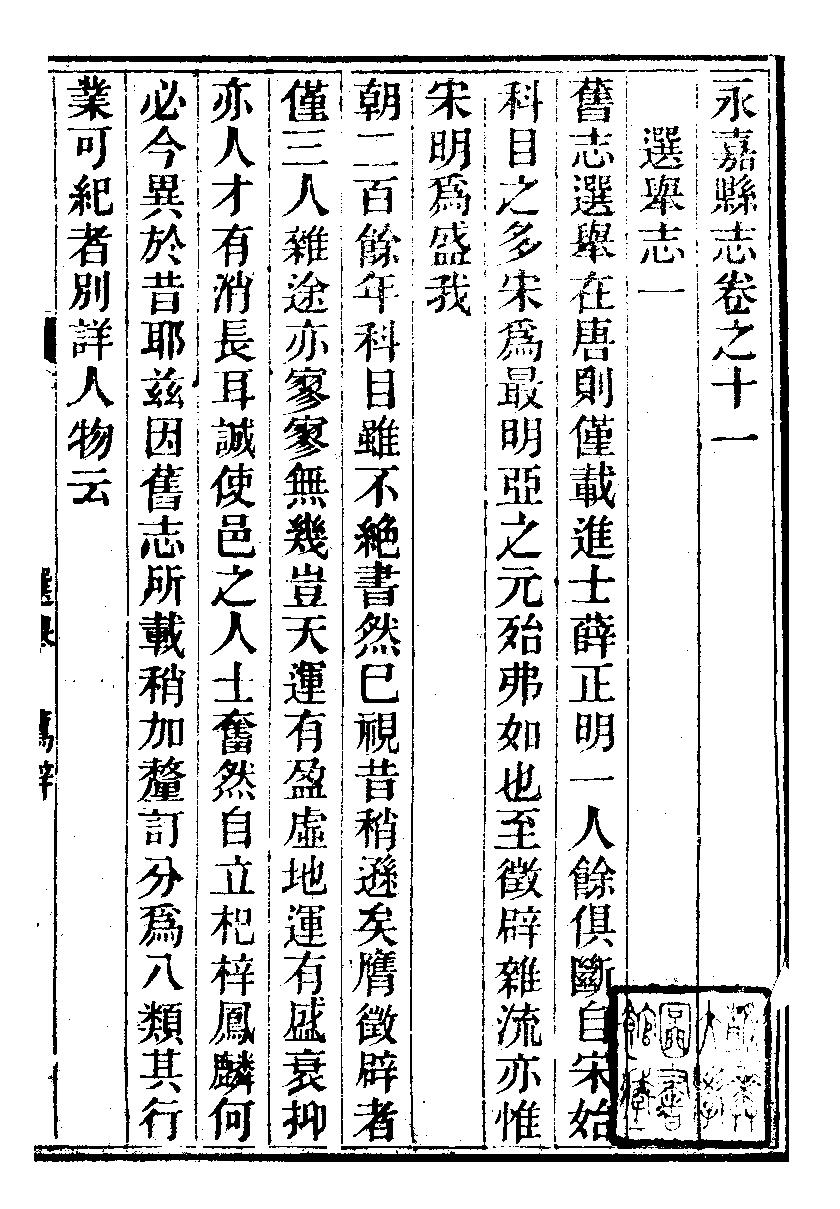 永嘉縣志卷之十一
選舉志一
舊志選舉在唐則僅載進士薛正明一人餘俱斷自宋始
科目之多宋爲最明亞之元殆弗如也至徵辟雜流亦惟
宋明爲盛我
朝二百餘年科目雖不絶書然已視昔稍遜矣膺徵辟者
僅三人雜途亦寥寥無幾豈天運有盈虛地運有盛衰抑
亦人才有消長耳誠使邑之人士奮然自立杞梓鳳麟何
必今異於昔耶兹因舊志所載稍加釐訂分爲八類其行
業可紀者別詳人物云